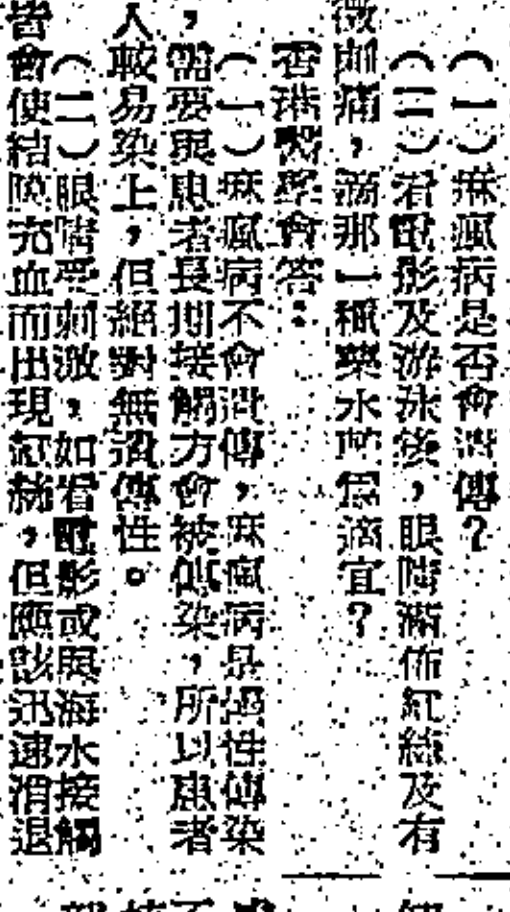 （一）痲瘋病是否會遺傳？
（二）看電影及游泳後，眼睛滿佈紅絲及有
微痛，滴那一種藥水較爲適宜？
香港醫學會答：
（一）痲瘋病不會遺傳，痲瘋病是慢性傳染
，需要與患者長期接觸方會被傳染，所以患者
人較易染上，但絕對無遺傳性。
（二）眼睛受刺激，如看電影或與海水接觸
皆會使結膜充血而出現紅赫，但應該迅速消退